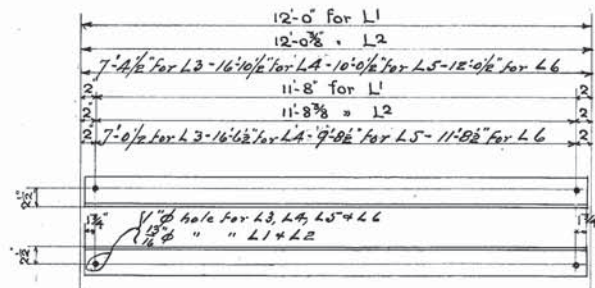 12'-0" for L1
12'-0⅜" " L2
7'-4½" for L3-16'-10½" for L4-10'-0½" for L5-12'-0½" for L6
2" 11'-8" for L1 2"
2" 11'-8⅜ " L2 2"
2" 7'-0½ for L3-16'-6½" for L4-9'-8½" for L5-11'-8½" for L6 2"
2½"
1¾" 1"φ hole for L3, L4, L5 & L6 1¾"
13/16"φ " " L1 & L2
2½"